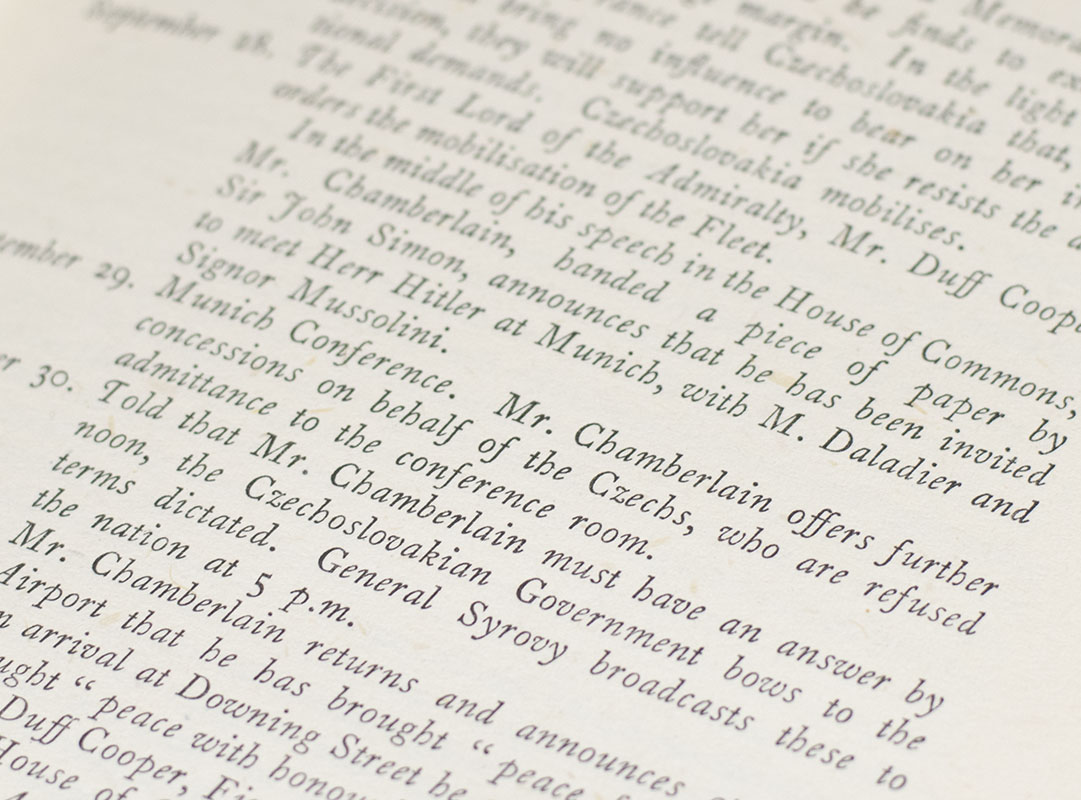 Memora
margin.
be finds to ex
bring no influence to bear on her in
tell Czechoslovakia that,
In the light
they will support her if she resists the a
tional demands. Czechoslovakia mobilises.
September 28. The First Lord of the Admiralty, Mr. Duff Coope
orders the mobilisation of the Fleet.
In the middle of his speech in the House of Commons,
Mr. Chamberlain, handed a piece of paper by
Sir John Simon, announces that he has been invited
to meet Herr Hitler at Munich, with M. Daladier and
Signor Mussolini.
ember 29. Munich Conference. Mr. Chamberlain offers further
concessions on behalf of the Czechs, who are refused
admittance to the conference room.
er 30. Told that Mr. Chamberlain must have an answer by
noon, the Czechoslovakian Government bows to the
terms dictated. General Syrovy broadcasts these to
the nation at 5 p.m.
Mr. Chamberlain returns and announces
Airport that he has brought “ peace
n arrival at Downing Street he
ught “ peace with honou
Duff Cooper, Fi
House of